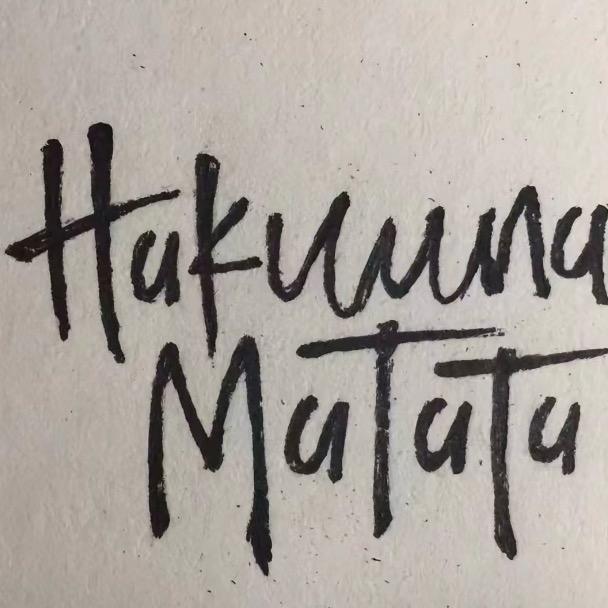 Hakuuna
Matata